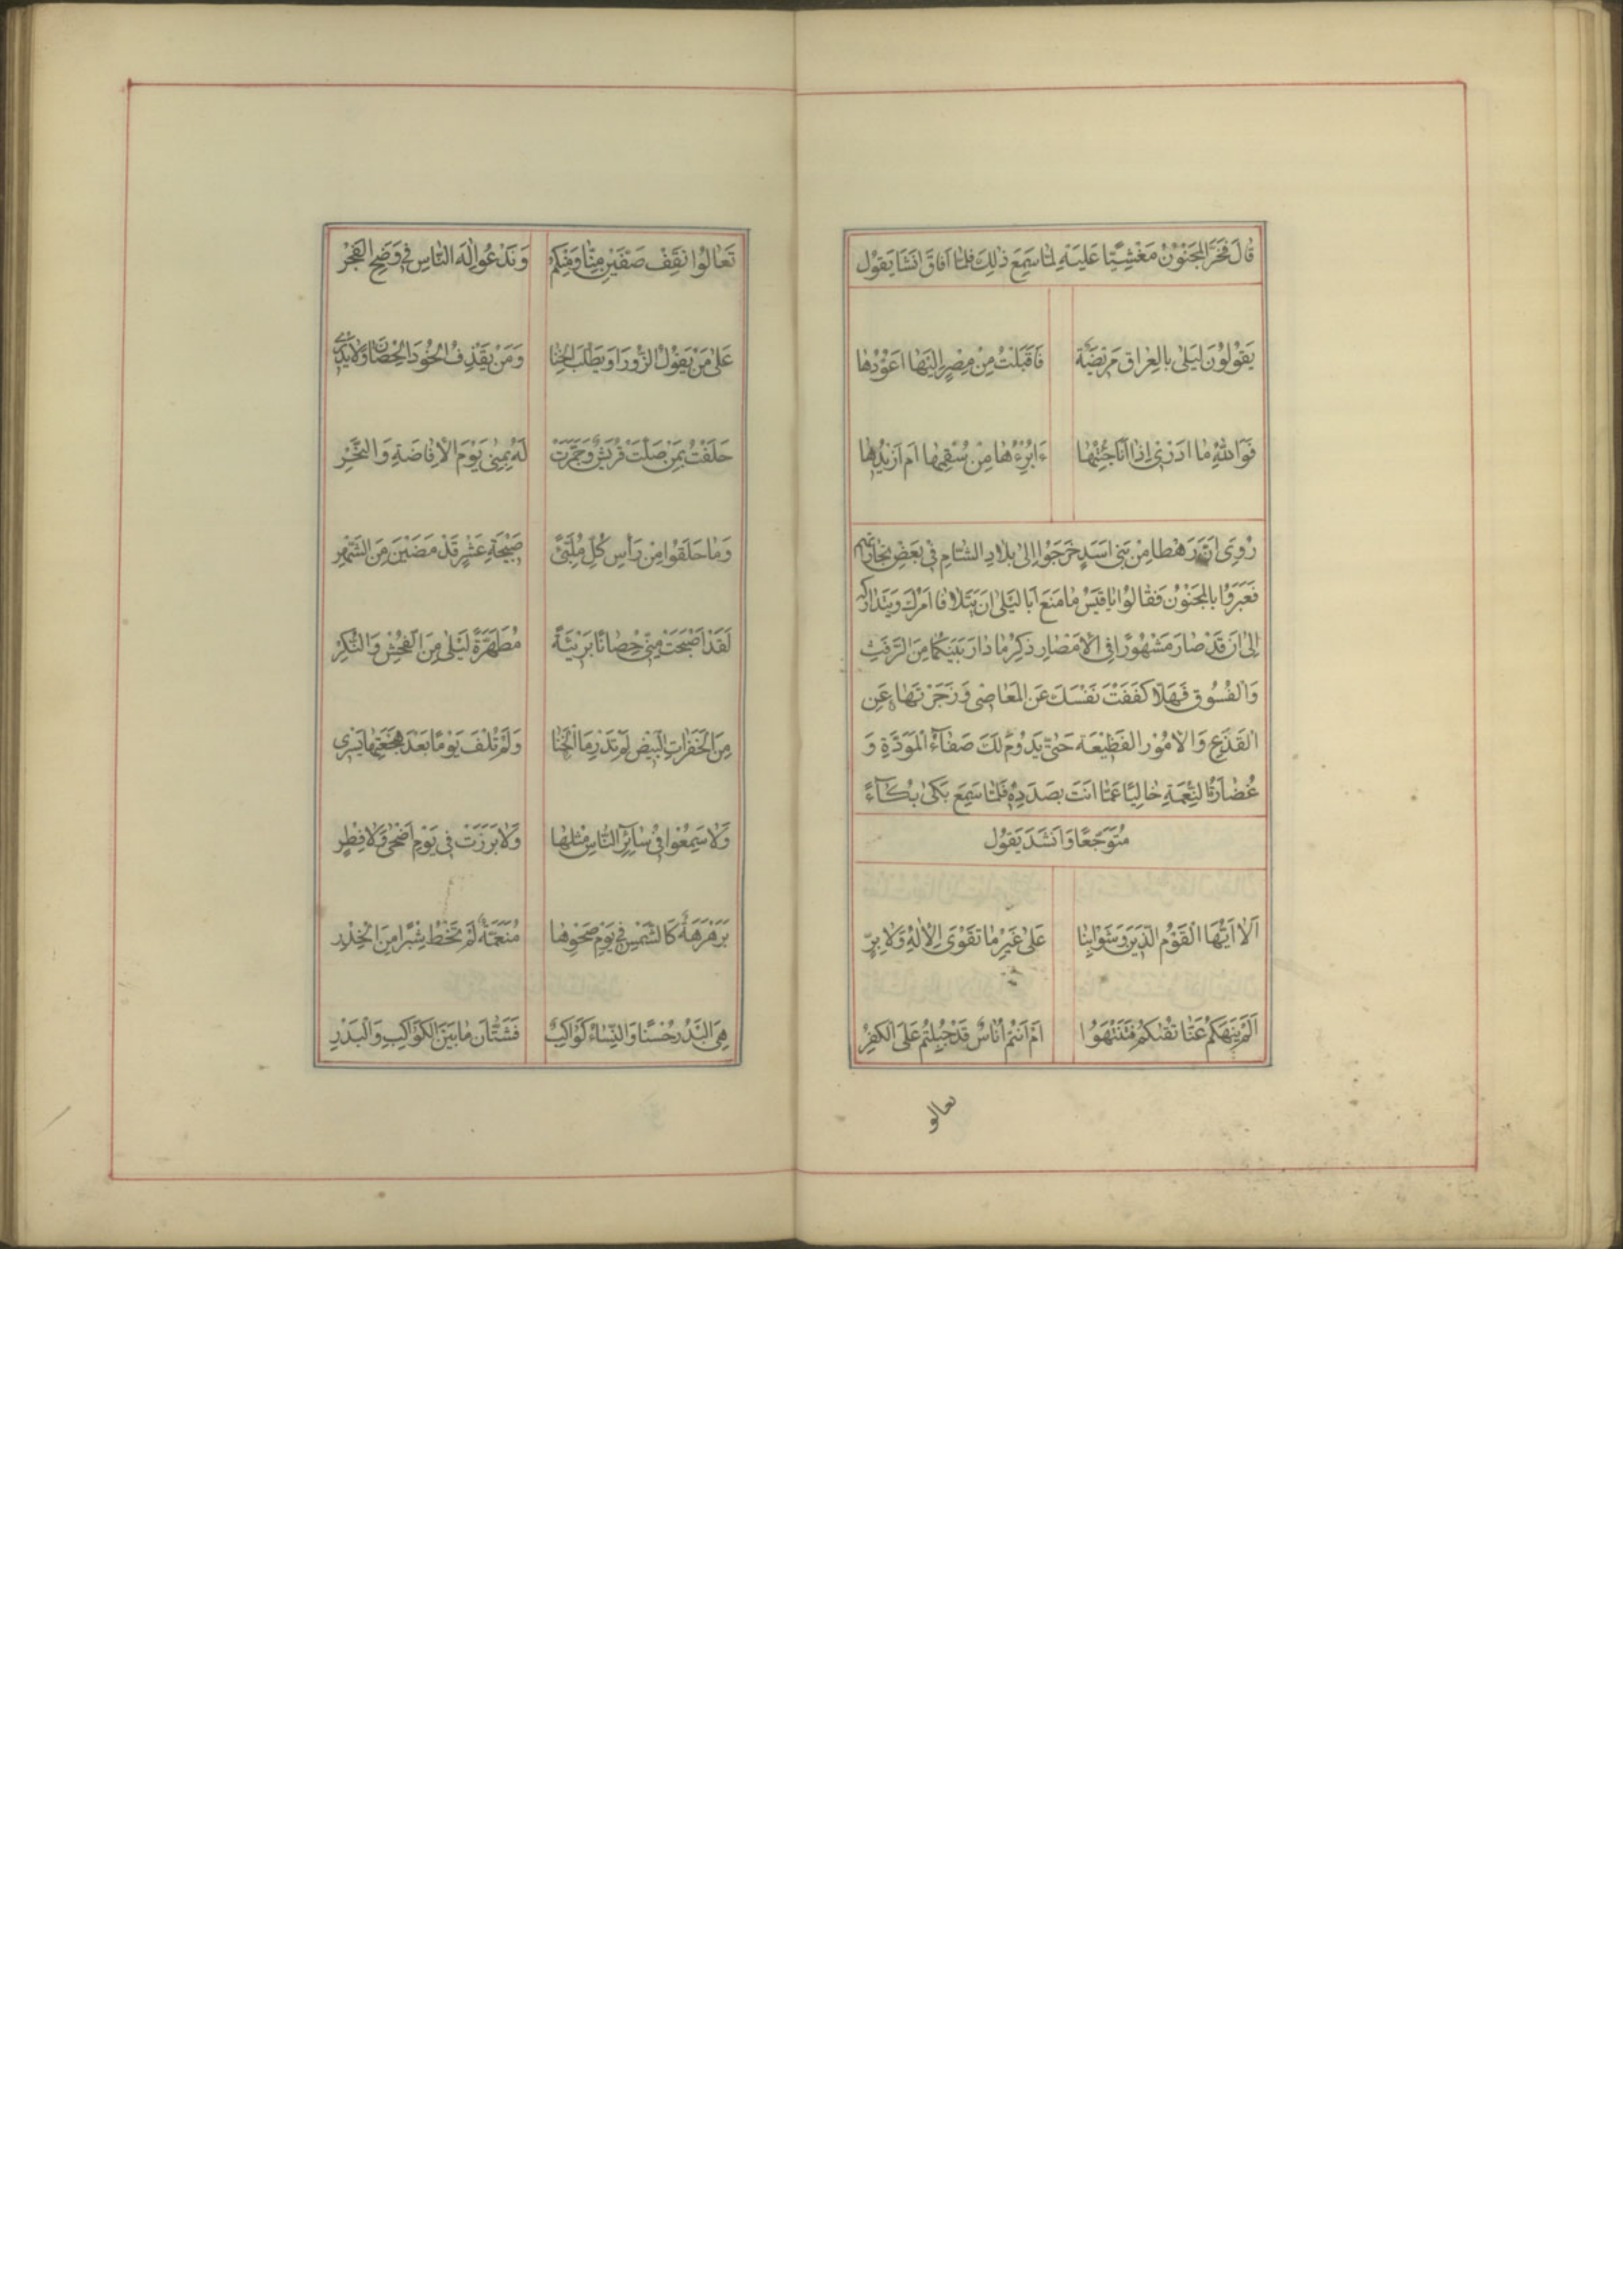 قٰالَ فَخَرَّ الْمَجْنُوْنُ مَغْشِيًّا عَلَيْهِ لَمّٰا سَمِعَ ذٰلِكَ فَلَمّٰا اَفٰاقَ اَنْشَا يَقُوْلُ
يَقُوْلُوْنَ لَيْلٰى بِالْعِرٰاقِ مَرِيْضَةٌ فَاَقْبَلْتُ مِنْ مِصْرٍ اِلَيْهٰا اَعُوْدُهٰا
فَوَاللّٰهِ مٰا اَدْرِيْ اِذٰا اَنَا جِئْتُهٰا ءَاُبْرِءُهٰا مِنْ سُقْمِهٰا اَمْ اَزِيْدُهٰا
رُوِيَ اَنَّ رَهْطًا مِنْ بَنِيْ اَسَدٍ خَرَجُوْا اِلٰى بِلٰادِ الشّٰامِ فِيْ بَعْضِ تِجٰارٰاتِهِمْ
فَعَبَرُوْا بِالْمَجْنُوْنِ فَقٰالُوْا يٰا قَيْسُ مٰا مَنَعَ اَبٰا لَيْلٰى اَنْ يَتَلٰافٰا اَمْرَكَ وَيَتَدٰارَكَهُ
اِلٰى اَنْ قَدْ صٰارَ مَشْهُوْرًا فِي الْاَمْصٰارِ ذِكْرُ مٰا دٰارَ بَيْنَكُمٰا مِنَ الرَّفَثِ
وَالْفُسُوْقِ فَهَلّٰا كَفَفْتَ نَفْسَكَ عَنِ الْمَعٰاصِيْ وَزَجَرْتَهٰا عَنِ
الْقَذَعِ وَالْاُمُوْرِ الْفَظِيْعَةِ حَتّٰى يَدُوْمَ لَكَ صَفٰآءُ الْمَوَدَّةِ وَ
غَضٰارَةُ النِّعْمَةِ خٰالِيًا عَمّٰا اَنْتَ بِصَدَدِهِ فَلَمّٰا سَمِعَ بَكٰى بُكٰآءً
مُتَوَجِّعًا وَاَنْشَدَ يَقُوْلُ
اَلٰا اَيُّهَا الْقَوْمُ الَّذِيْنَ وَشَوْا بِنٰا عَلٰى غَيْرِ مٰا تَقْوَى الْاِلٰهِ وَلٰا بِرٍّ
اَلَمْ يَنْهَكُمْ عَنّٰا تُقٰىكُمْ فَتَنْتَهُوْا اَمْ اَنْتُمْ اُنٰاسٌ قَدْ جُبِلْتُمْ عَلَى الْكُفْرِ
تعالو
تَعٰالَوْا نَقِفْ صَفَّيْنِ مِنّٰا وَمِنْكُمُ وَنَدْعُوْ اِلٰهَ النّٰاسِ فِيْ وَضَحِ الْفَجْرِ
عَلٰى مَنْ يَقُوْلُ الزُّوْرَ اَوْ يَطْلُبُ الْخَنٰا وَمَنْ يَقْذِفُ الْخُوْدَ الْحَصٰانَ وَلٰا يَدْرِيْ
حَلَفْتُ بِمَنْ صَلَّتْ قُرَيْشٌ وَجَمَّرَتْ لَهُ بِمِنٰى يَوْمَ الْاِفٰاضَةِ وَالنَّحْرِ
وَمٰا حَلَقُوْا مِنْ رَأْسِ كُلِّ مُلَبِّئٍ صَبِيْحَةَ عَشْرٍ قَدْ مَضَيْنَ مِنَ الشَّهْرِ
لَقَدْ اَصْبَحَتْ مِنِّيْ حَصٰانًا بَرِيْئَةً مُطَهَّرَةً لَيْلٰى مِنَ الْفُحْشِ وَالنُّكْرِ
مِنَ الْخَفِرٰاتِ الْبِيْضِ لَمْ تَدْرِ مَا الْخَنٰا وَلَمْ تُلْفَ يَوْمًا بَعْدَ هَجْعَتِهٰا تَسْرِيْ
وَلٰا سَمِعُوْا فِيْ سٰآئِرِ النّٰاسِ مِثْلَهٰا وَلٰا بَرَزَتْ فِيْ يَوْمِ اَضْحٰى وَلٰا فِطْرٍ
بَرَهْرَهَةٌ كَالشَّمْسِ فِيْ يَوْمِ صَحْوِهٰا مُنَعَّمَةٌ لَمْ تَخْطُ شِبْرًا مِنَ الْخِدْرِ
هِيَ الْبَدْرُ حُسْنًا وَالنِّسٰاءُ كَوٰاكِبٌ فَشَتّٰانَ مٰا بَيْنَ الْكَوٰاكِبِ وَالْبَدْرِ